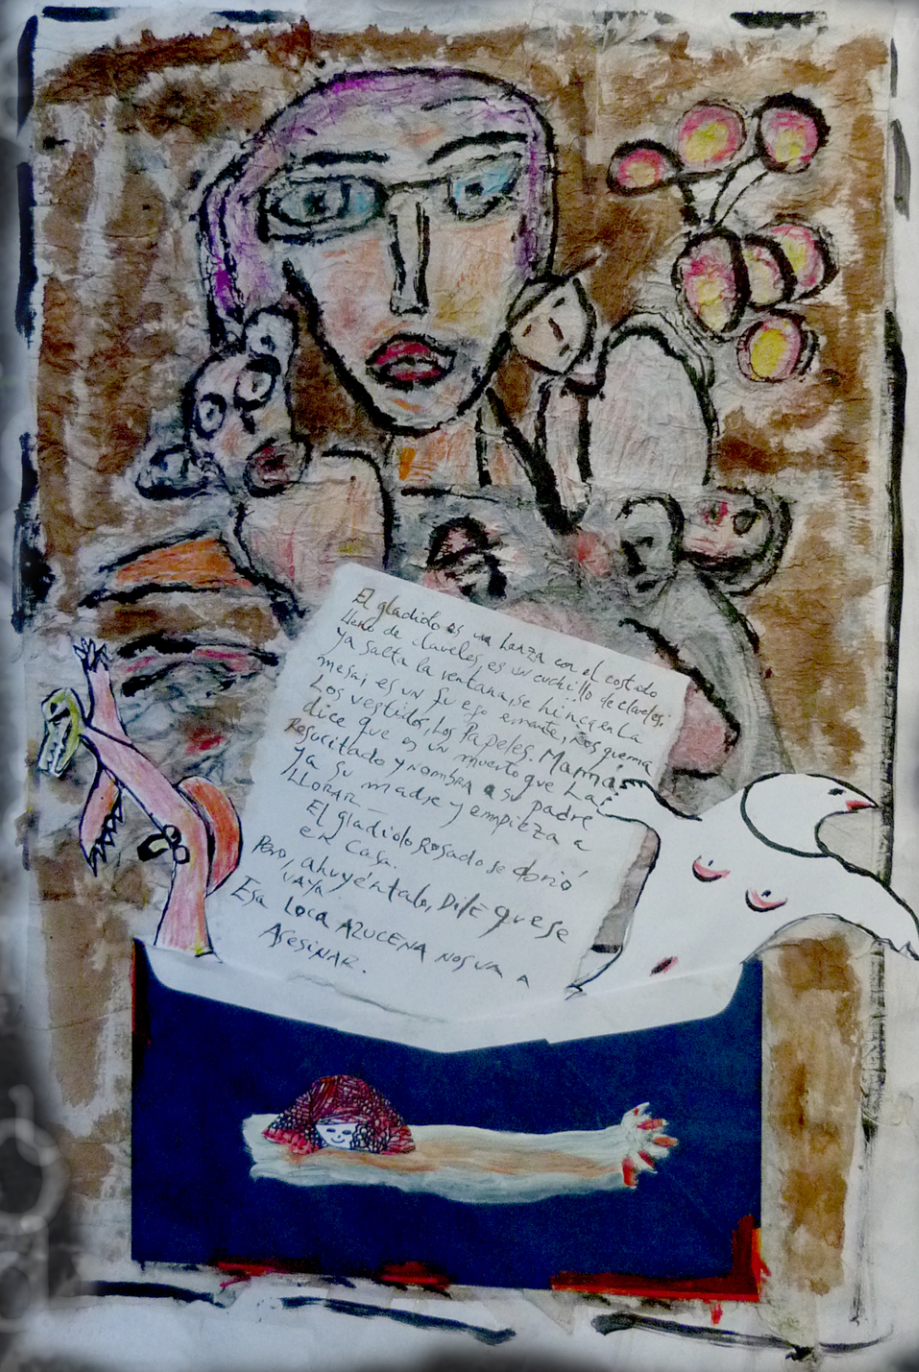 El gladiolo es una lanza con el costado
lleno de claveles, es un cuchillo de claveles;
ya salta la ventana, se hinca en la
mesa; es un fuego errante, nos quema
Los vestidos, Los Papeles. Mamá
dice que es un muerto que ha
Resucitado y nombra a su padre
ya su madre y empieza a
LLORAR
El gladiolo Rosado se abrió
en Casa.
Pero, ahuyéntalo, Dile que se
VAYA.
Esa Loca AZUCENA nos va a
Asesinar.